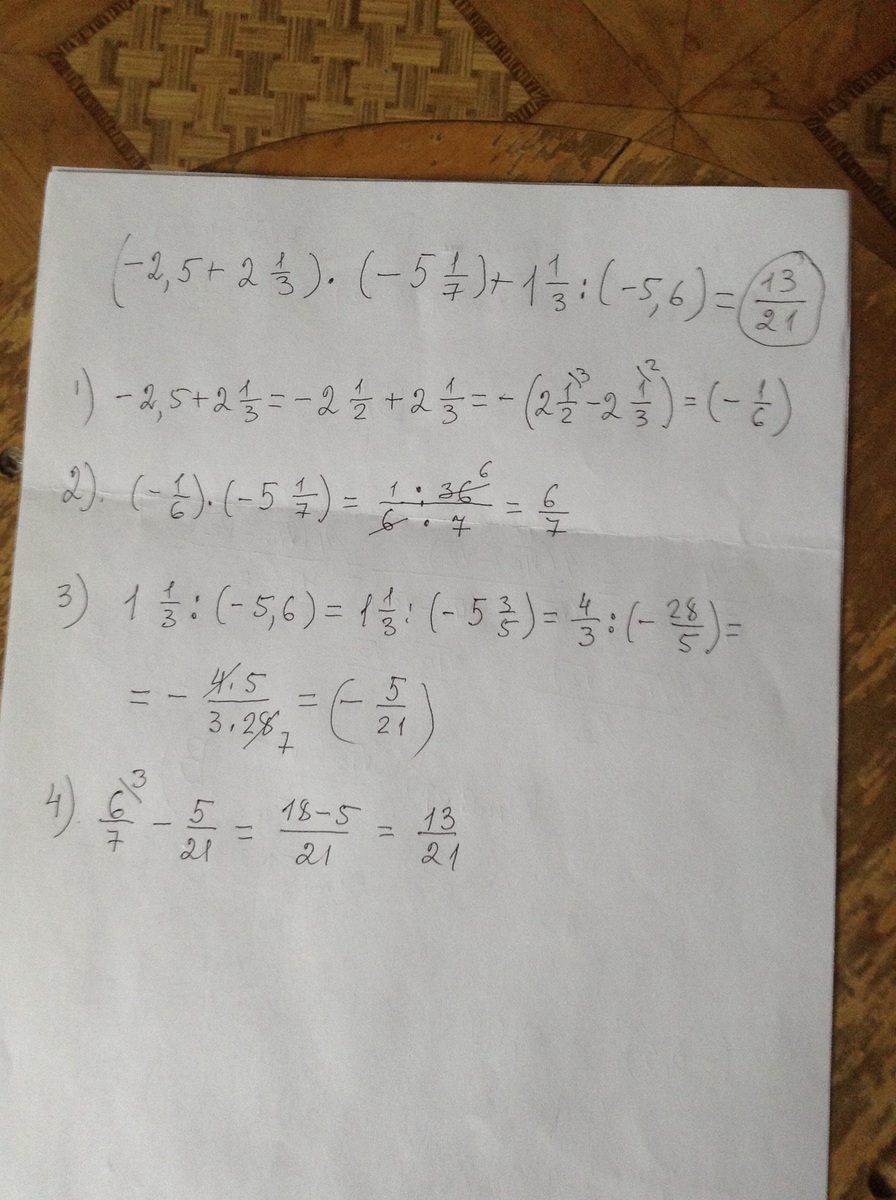 (-2,5 + 2 1/3) · (-5 1/7) + 1 1/3 : (-5,6) = 13/21
1) -2,5 + 2 1/3 = -2 1/2 + 2 1/3 = -(2 1/2 \3 - 2 1/3 \2) = (-1/6)
2). (-1/6) · (-5 1/7) = (1 · 36 6)/(6 · 7) = 6/7
3) 1 1/3 : (-5,6) = 1 1/3 : (-5 3/5) = 4/3 : (-28/5) =
= - (4 · 5)/(3 · 28 7) = (-5/21)
4). 6/7 \3 - 5/21 = (18-5)/21 = 13/21